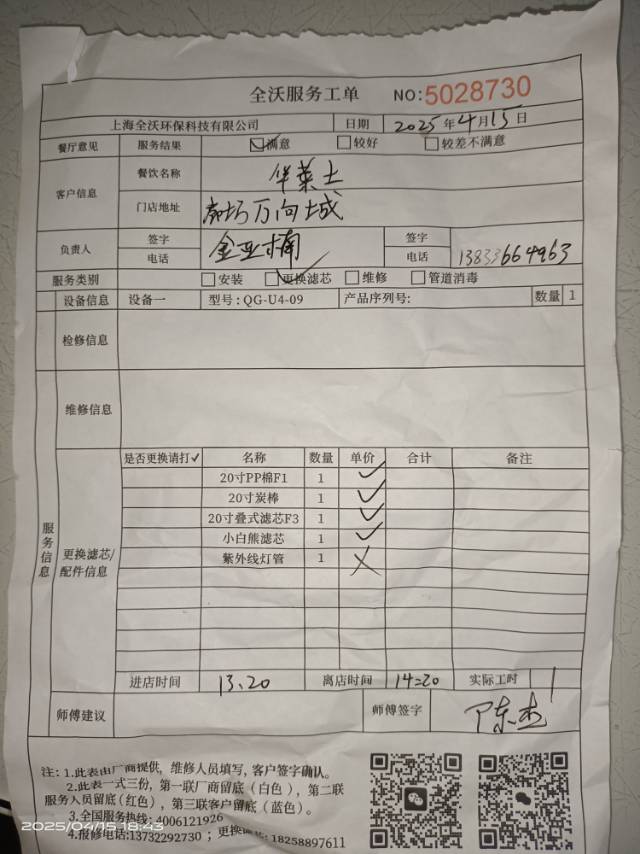 全沃服务工单 NO:5028730
上海全沃环保科技有限公司 日期 2025年4月15日
餐厅意见 服务结果 ☑满意 □较好 □较差不满意
客户信息 餐饮名称 华莱士
门店地址 廊坊万向城
负责人 签字 金亚楠 签字
电话 电话 13833664963
服务类别 □安装 ☑更换滤芯 □维修 □管道消毒
设备信息 设备一 型号:QG-U4-09 产品序列号: 数量 1
检修信息
维修信息
服务信息
更换滤芯/配件信息
是否更换请打✓ 名称 数量 单价 合计 备注
20寸PP棉F1 1 ✓
20寸炭棒 1 ✓
20寸叠式滤芯F3 1 ✓
小白熊滤芯 1 ✓
紫外线灯管 1 ✗
进店时间 13:20 离店时间 14:20 实际工时 1
师傅建议 师傅签字
注: 1.此表由厂商提供，维修人员填写，客户签字确认。
2.此表一式三份，第一联厂商留底（白色），第二联
服务人员留底(红色)，第三联客户留底（蓝色）。
3.全国服务热线: 4006121926
4.报修电话:13732292730 ; 更换 18258897611
2025/04/15 18:43